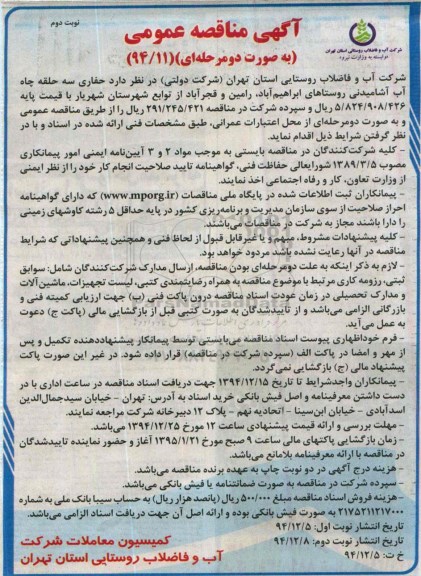 نوبت دوم
آگهی مناقصه عمومی
(به صورت دومرحله‌ای)(۹۴/۱۱)
شرکت آب و فاضلاب روستایی استان تهران
وابسته به وزارت نیرو
شرکت آب و فاضلاب روستایی استان تهران (شرکت دولتی) در نظر دارد حفاری سه حلقه چاه
آب آشامیدنی روستاهای ابراهیم‌آباد، رامین و قجرآباد از توابع شهرستان شهریار با قیمت پایه
۵/۸۲۴/۹۰۸/۴۲۶ ریال و سپرده شرکت در مناقصه ۲۹۱/۲۴۵/۴۲۱ ریال را از طریق مناقصه عمومی
و به صورت دومرحله‌ای از محل اعتبارات عمرانی، طبق مشخصات فنی ارائه شده در اسناد و با در
نظر گرفتن شرایط ذیل اقدام نماید.
- کلیه شرکت‌کنندگان در مناقصه بایستی به موجب مواد ۲ و ۳ آیین‌نامه ایمنی امور پیمانکاری
مصوب ۱۳۸۹/۳/۵ شورایعالی حفاظت فنی، گواهینامه تایید صلاحیت انجام کار خود را از نظر ایمنی
از وزارت تعاون، کار و رفاه اجتماعی اخذ نمایند.
- پیمانکاران ثبت اطلاعات شده در پایگاه ملی مناقصات (www.mporg.ir) که دارای گواهینامه
احراز صلاحیت از سوی سازمان مدیریت و برنامه‌ریزی کشور در پایه حداقل ۵ رشته کاوشهای زمینی
را دارا باشند مجاز به شرکت در مناقصات می‌باشند.
- کلیه پیشنهادات مشروط، مبهم و یا غیرقابل قبول از لحاظ فنی و همچنین پیشنهاداتی که شرایط
مناقصه در آنها رعایت نشده باشد مردود خواهد بود.
- لازم به ذکر اینکه به علت دومرحله‌ای بودن مناقصه، ارسال مدارک شرکت‌کنندگان شامل: سوابق
ثبتی، رزومه کاری مرتبط با موضوع مناقصه به همراه رضایتمندی کتبی، لیست تجهیزات، ماشین آلات
و مدارک تحصیلی در زمان عودت اسناد مناقصه درون پاکت فنی (ب) جهت ارزیابی کمیته فنی و
بازرگانی الزامی می‌باشد و از تاییدشدگان به صورت کتبی قبل از بازگشایی مالی (پاکت ج) دعوت
به عمل می‌آید.
- فرم خوداظهاری پیوست اسناد مناقصه می‌بایستی توسط پیمانکار پیشنهاددهنده تکمیل و پس
از مهر و امضا در پاکت الف (سپرده شرکت در مناقصه) قرار داده شود. در غیر این صورت پاکت
پیشنهاد مالی (ج) بازگشایی نمی‌گردد.
- پیمانکاران واجدشرایط تا تاریخ ۱۳۹۴/۱۲/۱۵ جهت دریافت اسناد مناقصه در ساعت اداری با در
دست داشتن معرفینامه و اصل فیش بانکی خرید اسناد به آدرس: تهران - خیابان سیدجمال‌الدین
اسدآبادی - خیابان ابن‌سینا - اتحادیه نهم - پلاک ۱۲ دبیرخانه شرکت مراجعه نمایند.
- مهلت بررسی و ارائه قیمت پیشنهادی ساعت ۱۲ مورخ ۱۳۹۴/۱۲/۲۵ می‌باشد.
- زمان بازگشایی پاکتهای مالی ساعت ۹ صبح مورخ ۱۳۹۵/۱/۲۱ آغاز و حضور نماینده تاییدشدگان
در مناقصه با ارائه معرفینامه بلامانع می‌باشد.
- هزینه درج آگهی در دو نوبت چاپ به عهده برنده مناقصه می‌باشد.
- سپرده شرکت در مناقصه به صورت ضمانتنامه یا فیش بانکی می‌باشد.
- هزینه فروش اسناد مناقصه مبلغ ۵۰۰/۰۰۰ ریال (پانصد هزار ریال) به حساب سیبا بانک ملی به شماره
۲۱۷۵۲۱۱۲۱۷۰۰۰ به صورت فیش بانکی بوده و ارائه اصل آن جهت دریافت اسناد الزامی می‌باشد.
تاریخ انتشار نوبت اول: ۹۴/۱۲/۵
تاریخ انتشار نوبت دوم: ۹۴/۱۲/۸
خ ت: ۹۴/۱۲/۵
کمیسیون معاملات شرکت
آب و فاضلاب روستایی استان تهران